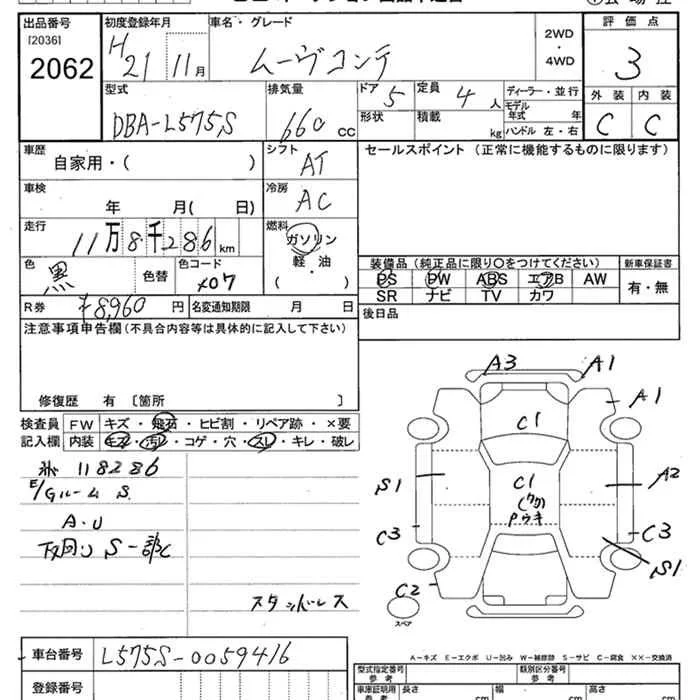 出品番号
[2036]
2062
初度登録年月
H21 11月
車名・グレード
ムーヴコンテ
2WD
・
4WD
評価点
3
外装 内装
C C
型式
DBA-L575S
排気量
660 CC
ドア 5
定員 4 人
形状
積載 kg
ディーラー・並行
モデル年式 年
ハンドル 左・右
車歴
自家用・( )
シフト
AT
セールスポイント (正常に機能するものに限ります)
車検
年 月( 日)
冷房
AC
走行
11万8千286km
燃料
ガソリン
軽・油
( )
色
黒
色替
色コード
X07
装備品 (純正品に限り〇をつけてください)
新車保証書
PS PW ABS エアB AW
SR ナビ TV カワ
有・無
R券 ¥8,960 円
名変通知期限 月 日
後日品
注意事項申告欄 (不具合内容等は具体的に記入して下さい)
修復歴 有 [箇所 ]
検査員
記入欄
FW キズ・飛石・ヒビ割・リペア跡・×要
内装 キズ・汚レ・コゲ・穴・スレ・キレ・破レ
118286
E/Gルーム S
A・U
下回り S一部C
スタッドレス
A3 A1
A1
C1
S1
C1
Pウキ
A2
C3
C3
S1
C2
スペア
A-キズ E-エクボ U-凹み W-補修跡 S-サビ C-腐食 ××-交換済
車台番号
L575S-0059416
登録番号
型式指定番号
参考
類別区分番号
参考
車庫証明用
参考
長さ cm
幅 cm
高さ cm